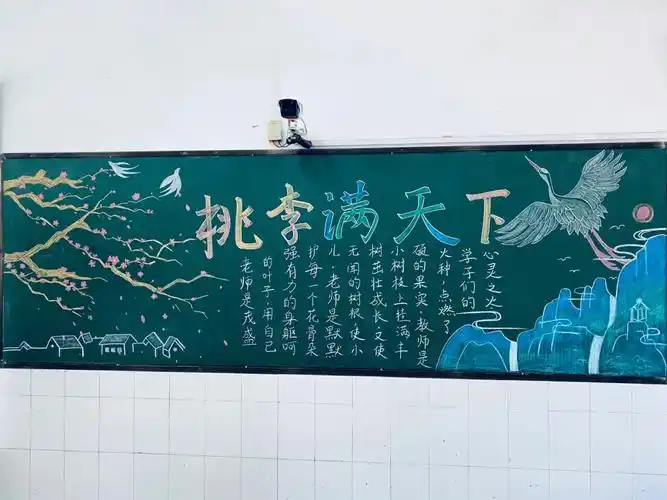 桃李满天下
老师是茂盛
的叶子,用自己
强有力的身躯呵
护每一个花骨朵
儿,老师是默默
无闻的树根,使小
树茁壮成长,又使
小树枝上挂满丰
硕的果实,教师是
火种,点燃了
学子们的
心灵之火